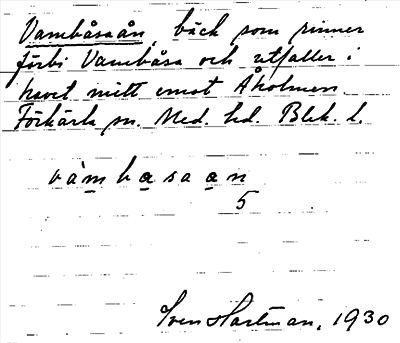 Vambåsaån, bäck som rinner
förbi Vambåsa och utfaller i
havet mitt emot Åholmen.
Förkärla sn. Med. hd. Blek. l.
vàmbasaan
5
Sven Hartman, 1930